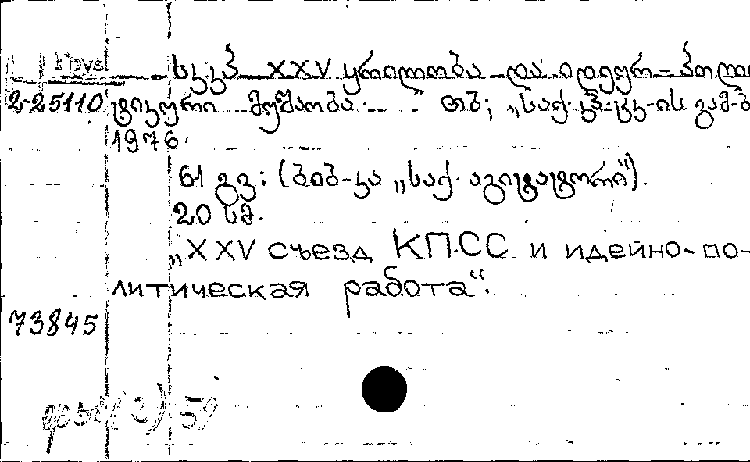 სკკპ XXV ყრილობა და იდეურ-პოლი
2-25110 ტიკური მუშაობა. თბ; „საქ. კპ ცკ-ის გამ-ბ
1976.
61 გვ: (ბიბ-კა „საქ. აგიტატორი“).
20 სმ.
„XXV съезд КПСС и идейно-по-
литическая работа“.
73845